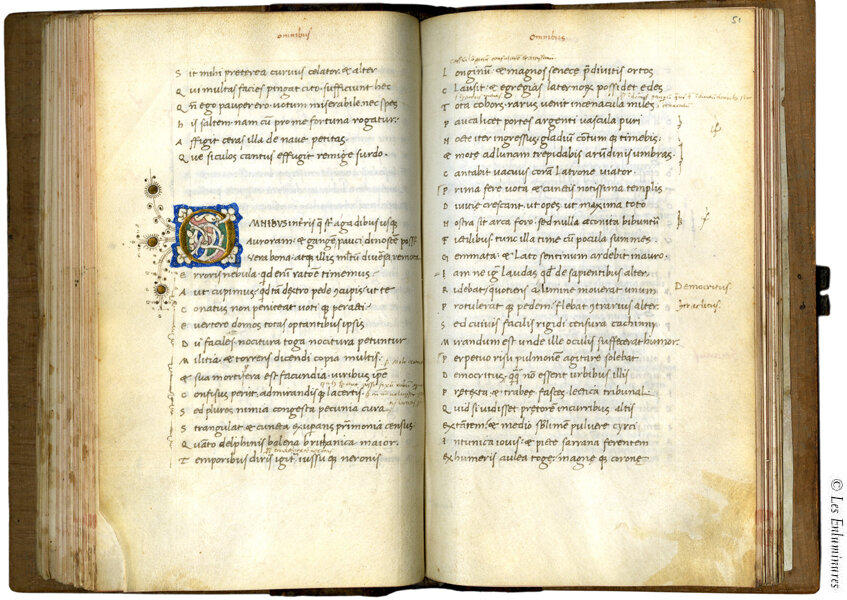 omnibus
S it mihi preterea curuus celator. & alter
Q ui multas facies pingat cito. sufficiunt hec
Q n ego pauper ero. uotum miserabile. nec spes
h is saltem. nam cu pro me fortuna rogatur.
A ffigit ceras illa de naue petitas.
Q ue siculos cantus effugit remige surdo.
OMNIBVS in terris q st agadibus usq
Auroram. & gangem. pauci dinoscere poss
Vera bona. atq illis mltu diuersa remota
E rroris nebula. qd eni ratoe timemus
A ut cupimus. qd ta dextro pede ycipis. ut te
C onatus non peniteat uoti q peracti.
E uertere domos totas optantibus ipsis
D ii faciles. nocitura toga nocitura petuntur
M ilitia. & torrens dicendi copia multis.
& sua mortifera est facundia. uiribus ipse
C onfisus periit. admirandis q lacertis.
S ed plures nimia congesta pecunia cura
S trangulat. & cuncta exupans primonia census
Q uato delphinis balena brithanica maior.
T emporibus diris igit. iussu q neronis
Omnibus
51
L onginu. & magnos senece pdiuitis ortos
C lausit. & egregias lateranor possidet edes
T ota cohors. rarus uenit in cenacula miles
P auca licet portes argenti uascula puri
N octe iter ingressus. gladiu contum q timebis.
& mote ad lunam trepidabis arudinis umbras.
C antabit uacuus cora Latrone uiator.
P rima fere uota & cunctis notissima templis
D iuitie crescant. ut opes. ut maxima toto
N ostra sit arca foro. sed nulla aconita bibuntu
F ictilibus. tunc illa time cu pocula summes
G emmata. & Lato setinum ardebit in auro.
I am ne ig Laudas qd de sapientibus alter.
R idebat. quotiens a limine mouerat unum
P rotulerat q pedem. flebat ytrarius alter.
S ed cuiuis facilis rigidi censura cachinni.
M irandum est unde ille oculis suffecerat humor.
P erpetuo risu pulmonem agitare solebat
D emocritus. qq no essent urbibus illis
P retexta. & trabee. fasces. lectica. tribunal.
Q uid si uidisset pretore in curribus altis
Extatem. & medio sblimem puluere cyrci
I n tunica iouis. & picte sarrana ferentem
Ex humeris aulea toge. magne q corone
Democritus
© Les Enluminures